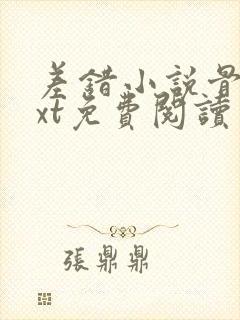 差錯小説最
xt免費閱讀
張鼎鼎